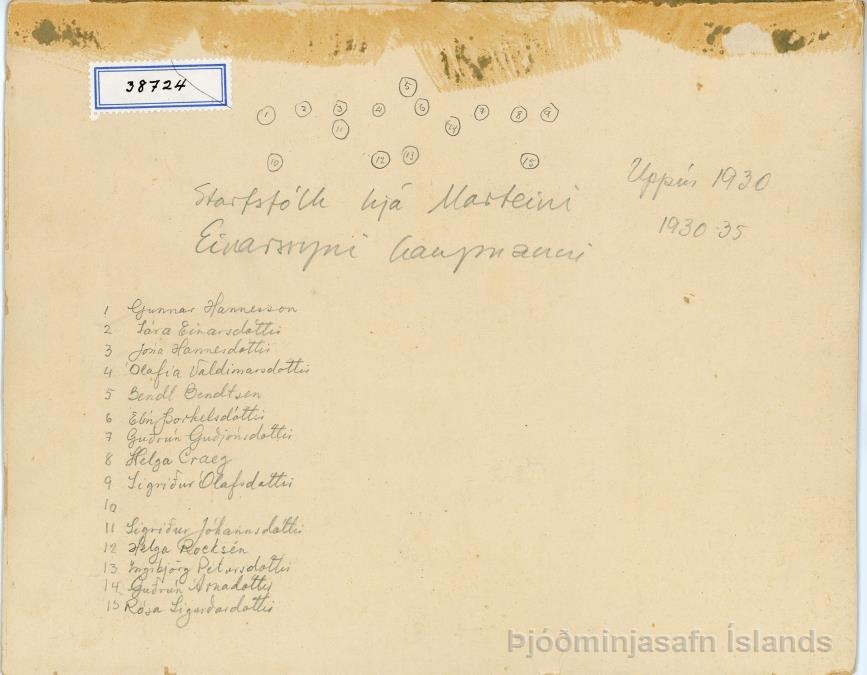 38724
5
1 2 3 4 6 7 8 9
11 14
10 12 13 15
Starfsfólk hjá Marteini
Einarssyni kaupmanni
1930
1930-35
1 Gunnar Hannesson
2 Sára Einarsdóttir
3 Jóna Hannesdóttir
4 Ólafía Valdimarsdóttir
5 Bendt Bendtsen
6 Elín Þorkelsdóttir
7 Guðrún Guðjónsdóttir
8 Helga Craeg
9 Sigríður Ólafsdóttir
10
11 Sigríður Jóhannsdóttir
12 Helga Rocksén
13 Ingibjörg Pétursdóttir
14 Guðrún Árnadóttir
15 Rósa Sigurðardóttir
Þjóðminjasafn Íslands